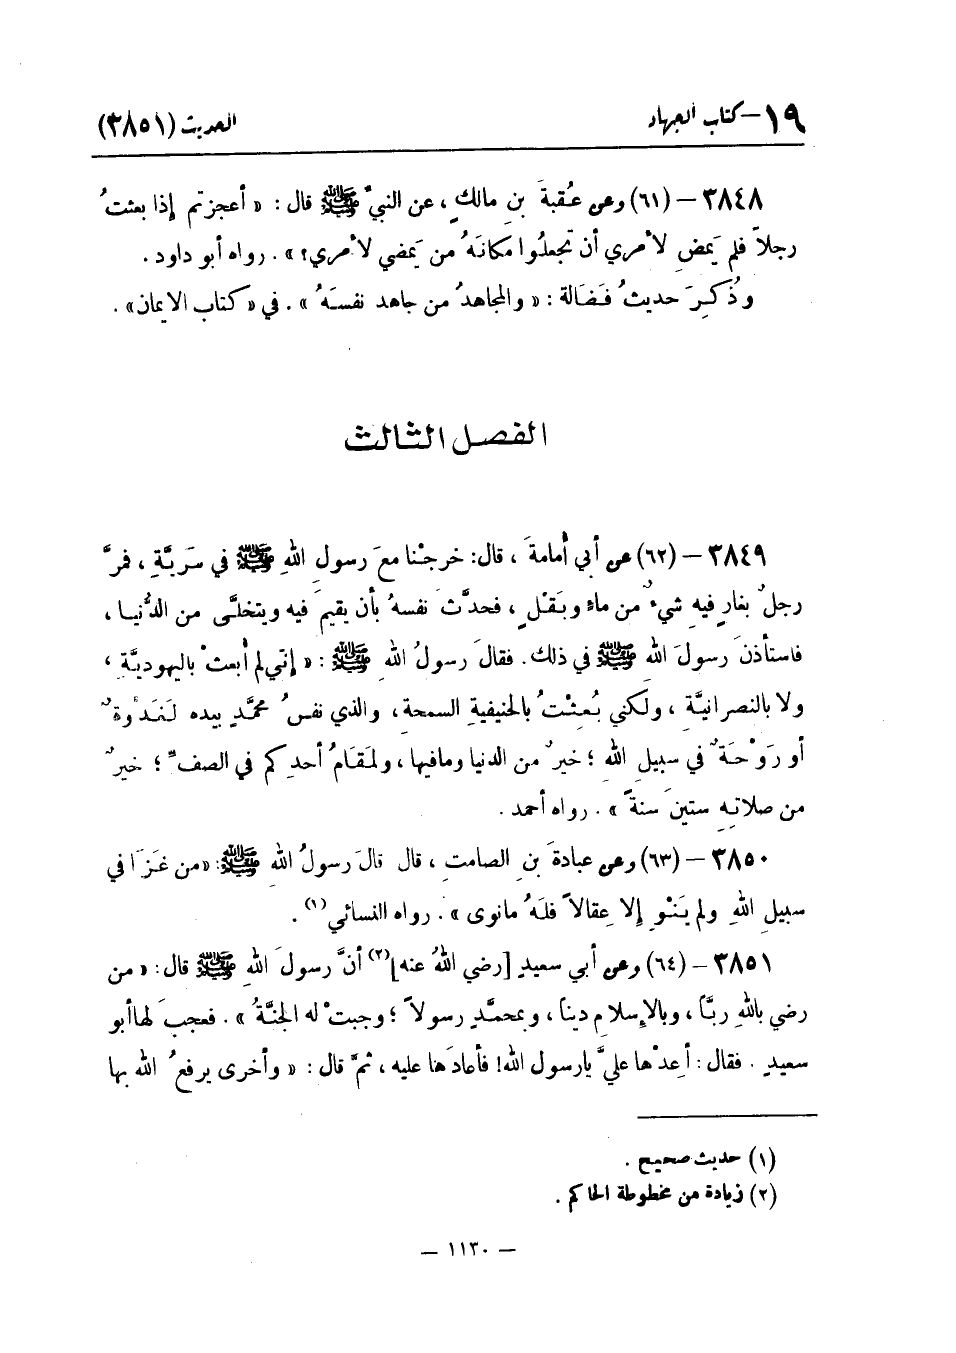 ١٩ – كتاب الجهاد
الحديث (٣٨٥١)
٣٨٤٨ – (٦١) وعن عُقبةَ بنِ مالكٍ، عن النبيِّ ﷺ قال: « أعجزتم إذا بعثتُ
رجلاً فلم يَمضِ لأمري أن تجعلُوا مكانَهُ من يَمضي لأمري؟ ». رواه أبو داود.
وذُكِرَ حديثُ فَضالة: « والمجاهدُ من جاهد نفسَهُ ». في « كتاب الايمان ».
الفصل الثالث
٣٨٤٩ – (٦٢) عن أبي أُمامةَ، قال: خرجْنا معَ رسولِ اللهِ ﷺ في سَريَّةٍ، فمرَّ
رجلٌ بغارٍ فيهِ شيءٌ من ماءٍ وبَقْلٍ، فحدَّثَ نفسهُ بأن يقيمَ فيه ويتخلَّى من الدُّنيا،
فاستأذنَ رسولَ الله ﷺ في ذلك. فقالَ رسولُ اللهِ ﷺ: « إنّي لم أُبعثْ باليهوديَّةِ،
ولا بالنصرانيَّةِ، ولكني بُعِثْتُ بالحنيفيةِ السمحةِ، والذي نفسُ محمَّدٍ بيده لَغَدْوةٌ
أو رَوْحَةٌ في سبيلِ اللهِ؛ خيرٌ من الدنيا ومافيها، ولَمقَامُ أحدِكم في الصفِّ؛ خيرٌ
من صلاتِهِ ستينَ سنةً ». رواه أحمد.
٣٨٥٠ – (٦٣) وعن عبادةَ بنِ الصامت، قال قالَ رسولُ اللهِ ﷺ: « من غَزَا في
سبيلِ اللهِ ولم يَنْوِ إلا عِقالاً فلَهُ مانوى ». رواه النسائي(١).
٣٨٥١ – (٦٤) وعن أبي سعيدٍ [رضي اللهُ عنه](٢) أنَّ رسولَ اللهِ ﷺ قال: « من
رضي باللهِ ربّاً، وبالإسلامِ ديناً، وبمحمَّدٍ رسولاً؛ وجبتْ له الجنَّةُ ». فعجبَ لها أبو
سعيدٍ. فقال: أعِدْها عليَّ يارسول الله! فأعادَها عليه، ثمَّ قال: « وأخرى يرفعُ الله بها
(١) حديث صحيح.
(٢) زيادة من مخطوطة الحاكم.
– ١١٣٠ –